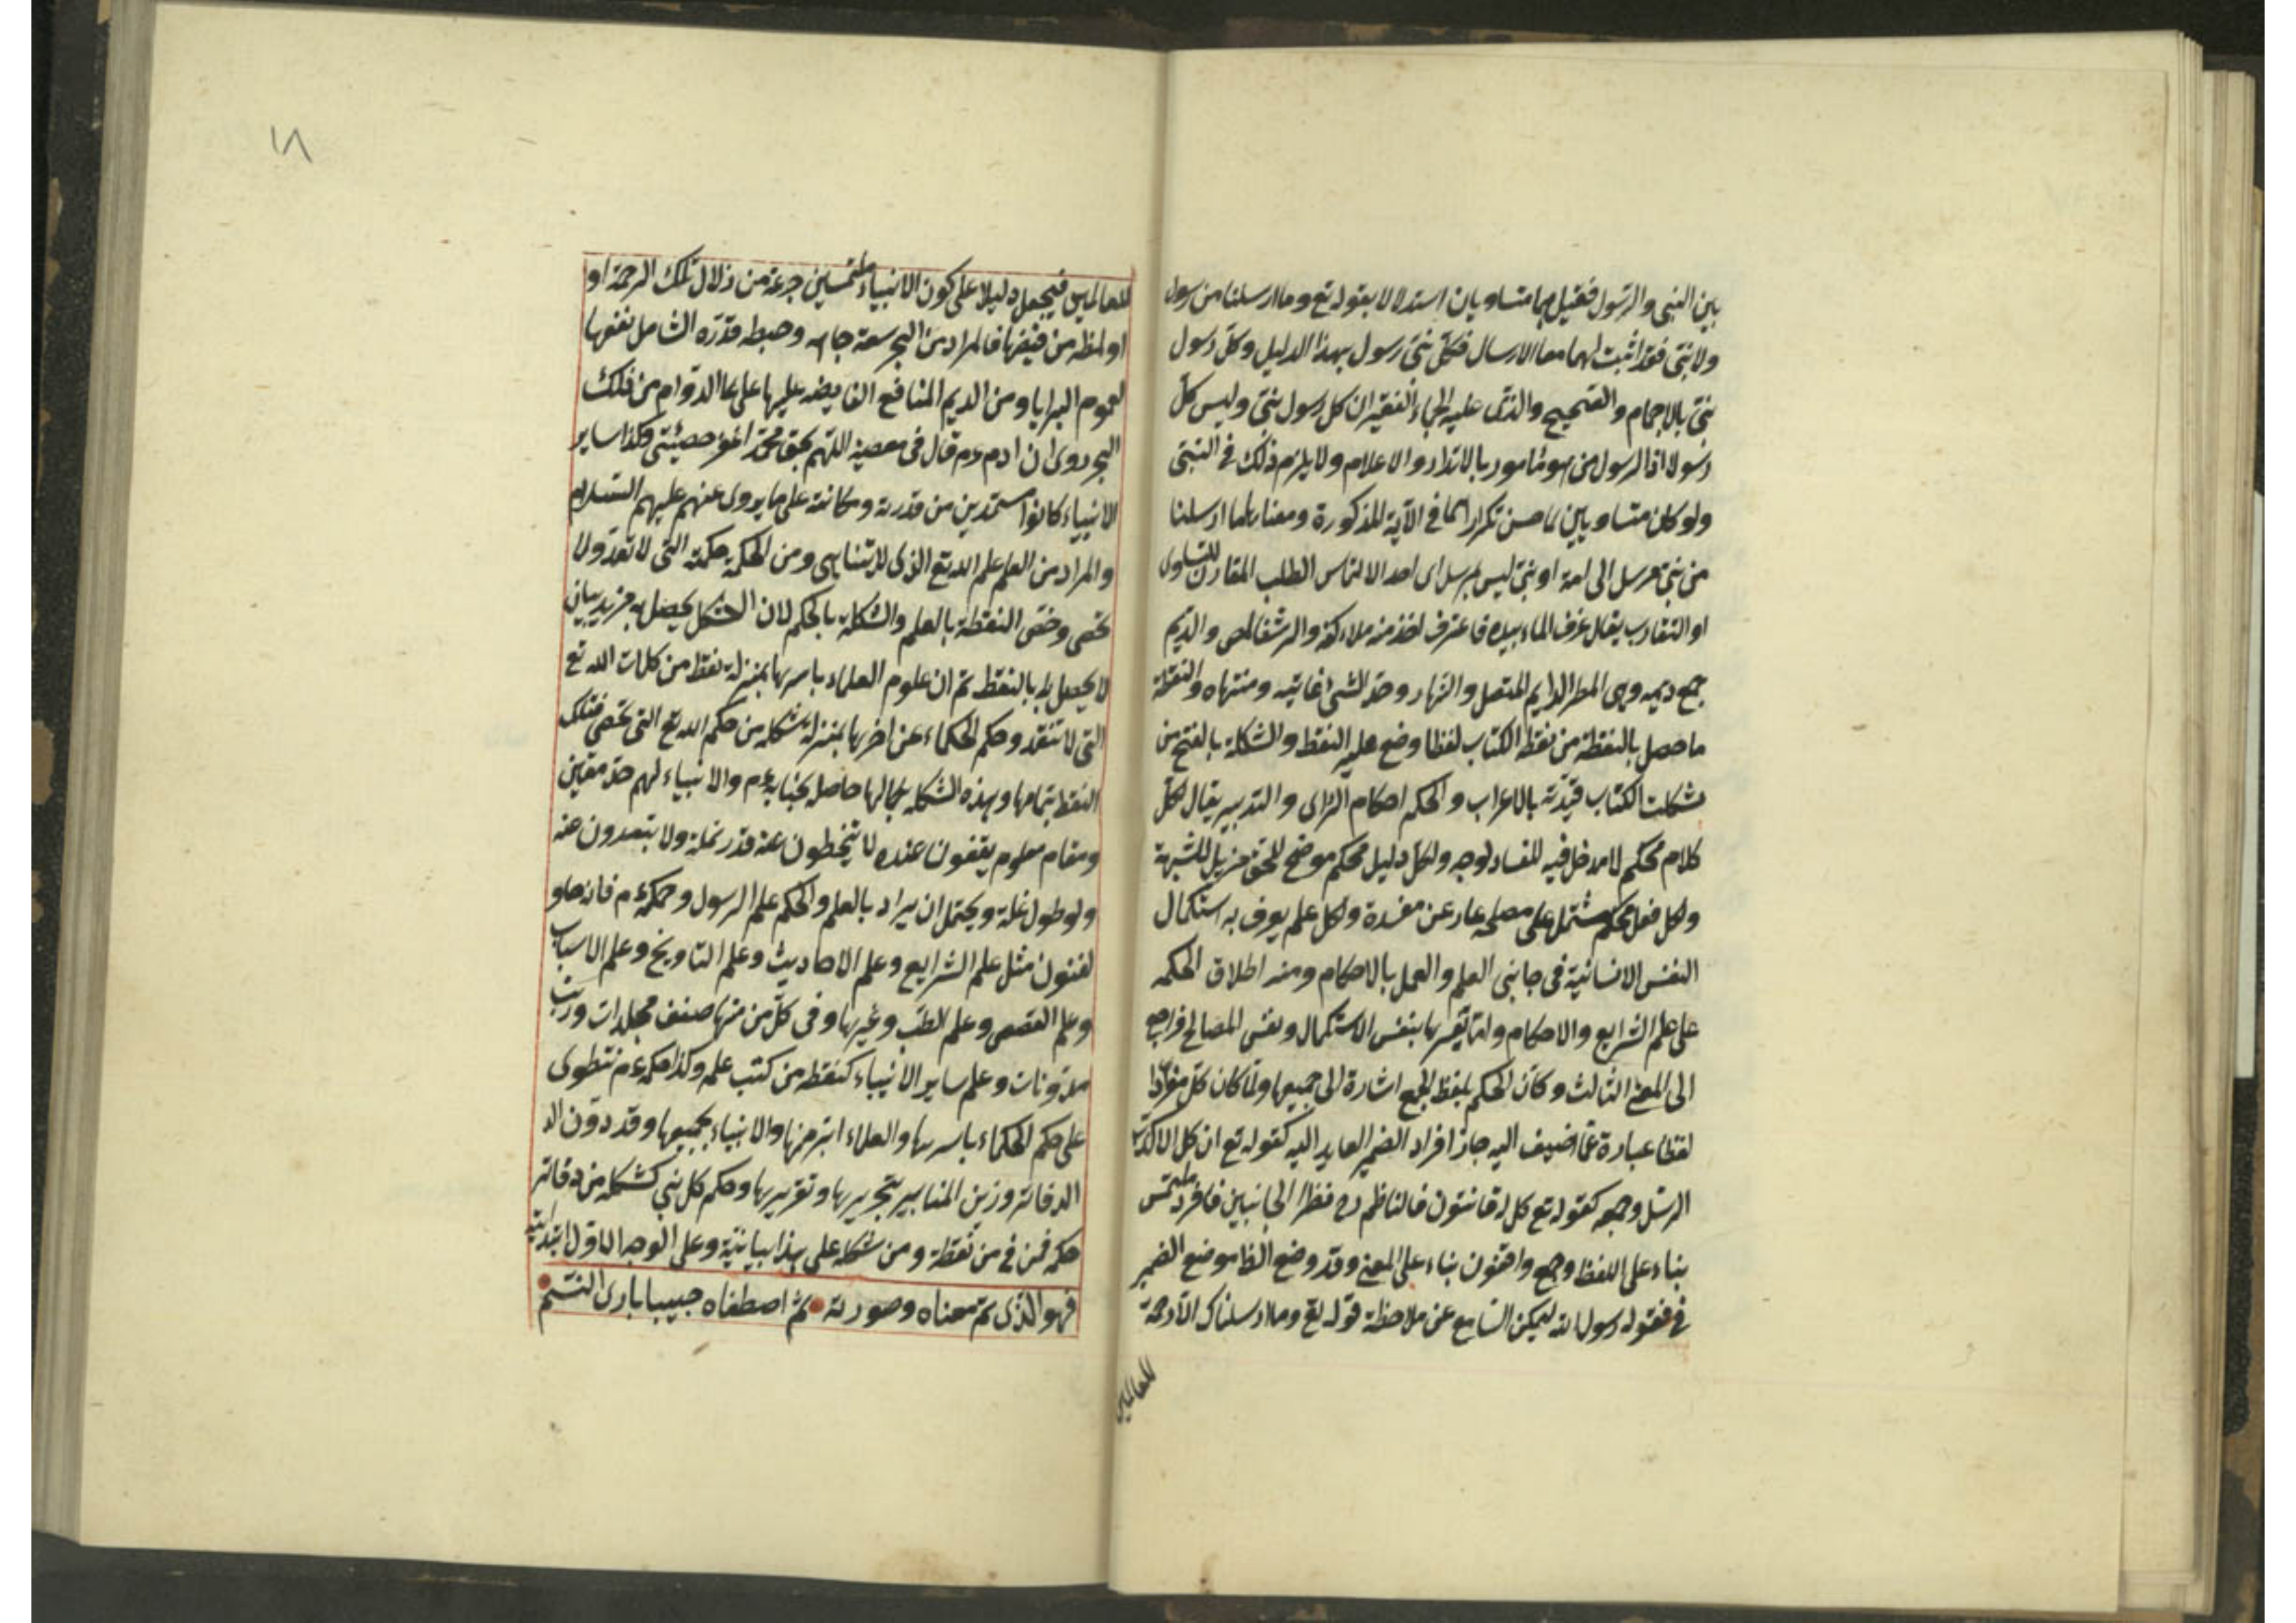 بين النبى والرسول فقيل هما متساويان استدلالا بقوله تع وما ارسلنا من رسول
ولا نبى فقد اثبت لهما معا الارسال فكل نبى رسول بهذا الدليل وكل رسول
نبى بالاجماع والصحيح والذى عليه الجماء الغفير ان كل رسول نبى وليس كل
رسولا اذا الرسول من هو مامور بالانذار والاعلام ولا يلزم ذلك فى النبى
ولو كان متساويين لما حسن تكرارهما فى الآية المذكورة ومعناه ما ارسلنا
من نبى مرسل الى امة او نبى ليس بمرسل اى احد الالتماس الطلب المقارن للتساوى
او التقارب يقال غرف الماء بيده فاغترف اخذ منه ملاء كفه والرشف المص والديم
جمع ديمه وهى المطر الدايم المتصل والنهار وحد الشئ غايته ومنتهاه والنقطة
ما حصل بالنقطة من نقط الكتاب لفظا وضع عليه النقط والشكلة بالفتح من
شكلت الكتاب قيدته بالاعراب والحكم احكام الراى والتدبير يقال لكل
كلام محكم لا مدخل فيه للفساد لوجه ولكل دليل محكم موضح للحق مزيل للشبهة
وكل فعل محكم مشتمل على مصلحه عار عن مفسدة ولكل علم يعرف به استكمال
النفس الانسانية فى جانبى العلم والعمل بالاحكام ومنه اطلاق الحكمه
على علم الشرايع والاحكام واما تفسيرها بنفس الاستكمال ونفس المصالح فراجع
الى المعنى الثالث وكأن الحكم بلفظ الجمع اشارة الى جميعها ولما كان كل مفردا
لفظا عبارة عما اضيف اليه جاز افراد الضمير العايد اليه كقوله تع ان كل الا كذب
الرسل وجمعه كقوله تع كل له قانتون فالناظم رح نظرا الى الجانبين فافرد ملتمس
بناء على اللفظ وجمع واقفون بناء على المعنى وقد وضع الظا موضع الضمير
فى قوله رسول الله ليمكن السامع عن ملاحظة قوله تع وما ارسلناك الا رحمة
للعالمين
٨١
للعالمين فيجعل دليلا على كون الانبياء ملتمسين جرعة من زلال تلك الرحمة او
او لمظه من فيضها فالمراد من البحر سعة جاهه وضبطه قدره الشامل نفعها
لعموم البرايا ومن الديم المنافع الفايضه عليها على الدوام من فلك
البحر روى ان ادم عم قال فى معصيته اللهم بحق محمد اغفر خطيئتى وكذا ساير
الانبياء كانوا مستمدين من قدرته ومكانته على ما يروى عنهم عليهم السلام
والمراد من العلم علم الله تع الذى لا يتناهى ومن الحكمة حكمته التى لا تعد ولا
تحصى وخص النقطة بالعلم والشكلة بالحكم لان الشكل يحصل به مزيد بيان
لا يحصل بالنقط ثم ان علوم العلماء باسرها بمنزلة نقطة من كلمات الله تع
التى لا تنفد وحكم الحكماء عن اخرها بمنزلة شكله من حكم الله تع التى تحصى فتلك
النقط بتمامها وبهذه الشكله بكمالها حاصله بجنابه عم والانبياء لهم حد معين
ومقام معلوم يقفون عنده لا يتخطون عنه قدر نملة ولا يتعدون عنه
ولو طول نملة ويحتمل ان يراد بالعلم والحكم علم الرسول وحكمه عم فانه حاو
لفنون مثل علم الشرايع وعلم الاحاديث وعلم التاويخ وعلم الاسباب
وعلم القصص وعلم الطب وغيرها وفى كل من منها صنف مجلدات ورتب
مدونات وعلم ساير الانبياء كنقطه من كتب علمه وكذا حكمه عم تنطوى
على حكم الحكماء باسرها والعلماء ابترمزها والانبياء بجميعها وقد دون الد
الدفاتر وزين المنابير بتحريرها وتقريرها وحكم كل نبى كشكله من دفاتر
حكمه فمن فى من نقطة ومن شكله على هذا بيانية وعلى الوجه الاول ابتدائية
فهو الذى تم معناه وصورته • ثم اصطفاه حبيبا بارئ النسم •